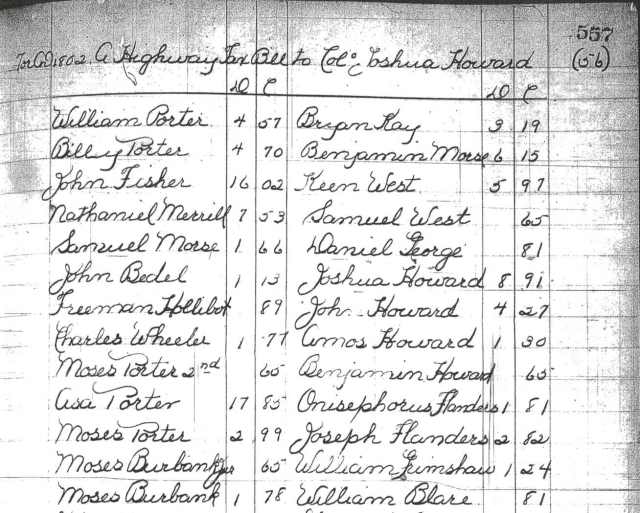 557
For AD 1802. A Highway Tax Bill to Colo. Joshua Howard (56)
D C D C
William Porter 4 57 Bryan Kay 3 19
Billy Porter 4 70 Benjamin Morse 6 15
John Fisher 16 02 Keen West 5 97
Nathaniel Merrill 7 53 Samuel West 65
Samuel Morse 1 66 Daniel George 81
John Bedel 1 13 Joshua Howard 8 91
Freeman 89 John Howard 4 27
Charles Wheeler 1 77 Amos Howard 1 30
Moses Porter 2nd 65 Benjamin Howard 65
Asa Porter 17 85 Onisephorus Flanders 1 81
Moses Porter 2 99 Joseph Flanders 2 82
Moses Burbank Jur 65 William Grimshaw 1 24
Moses Burbank 1 78 William Blare 81